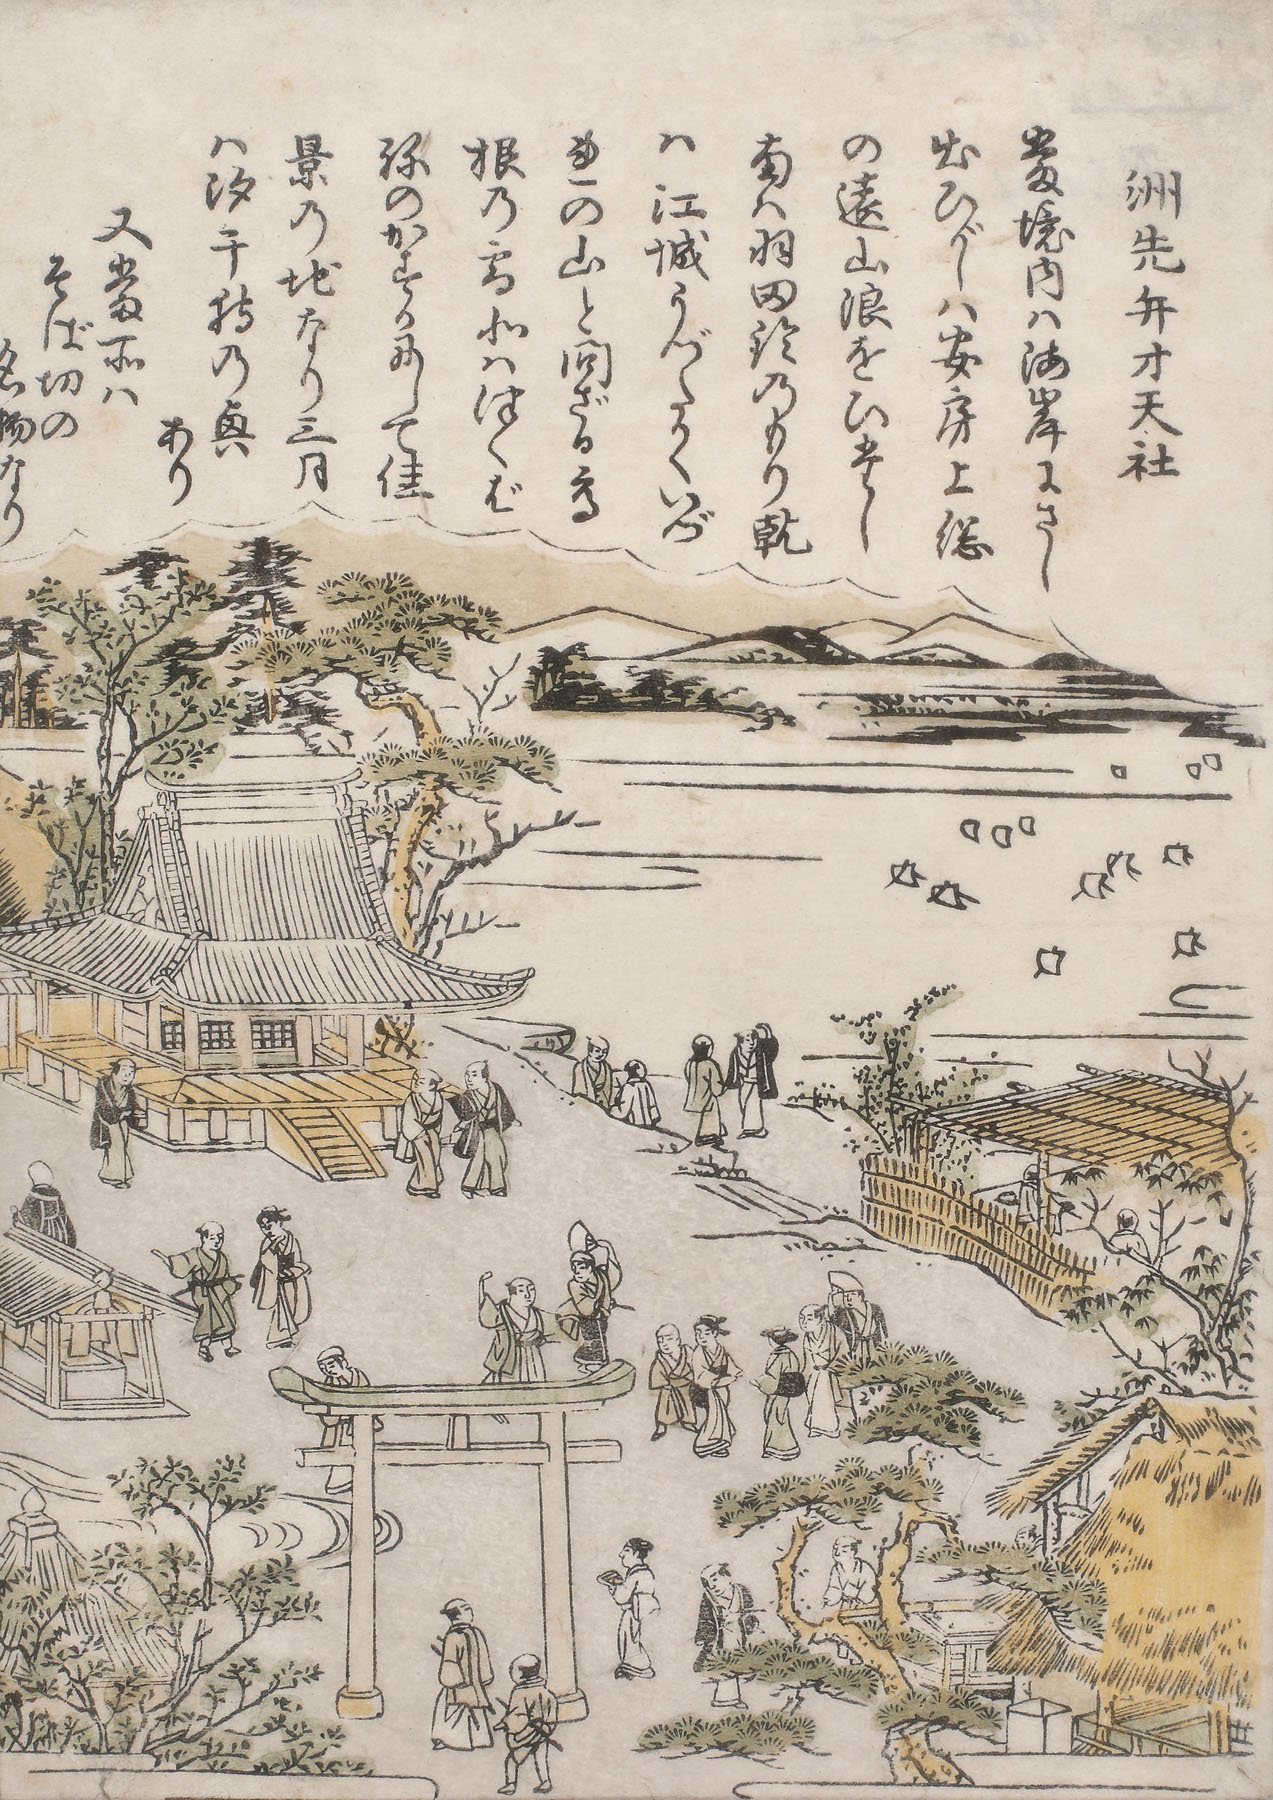 洲先弁才天社
當境内ハ海岸にさし
出ひがしハ安房上総
の遠山浪をひたし
南ハ羽田鈴のもり乾
ハ江城うづたかくいづ
れの山と問ざる高
根の雪北ハつくば
祢のかすかにして佳
景の地なり三月
ハ汐干狩の輿
あり
又當所ハ
そば切の
名物なり